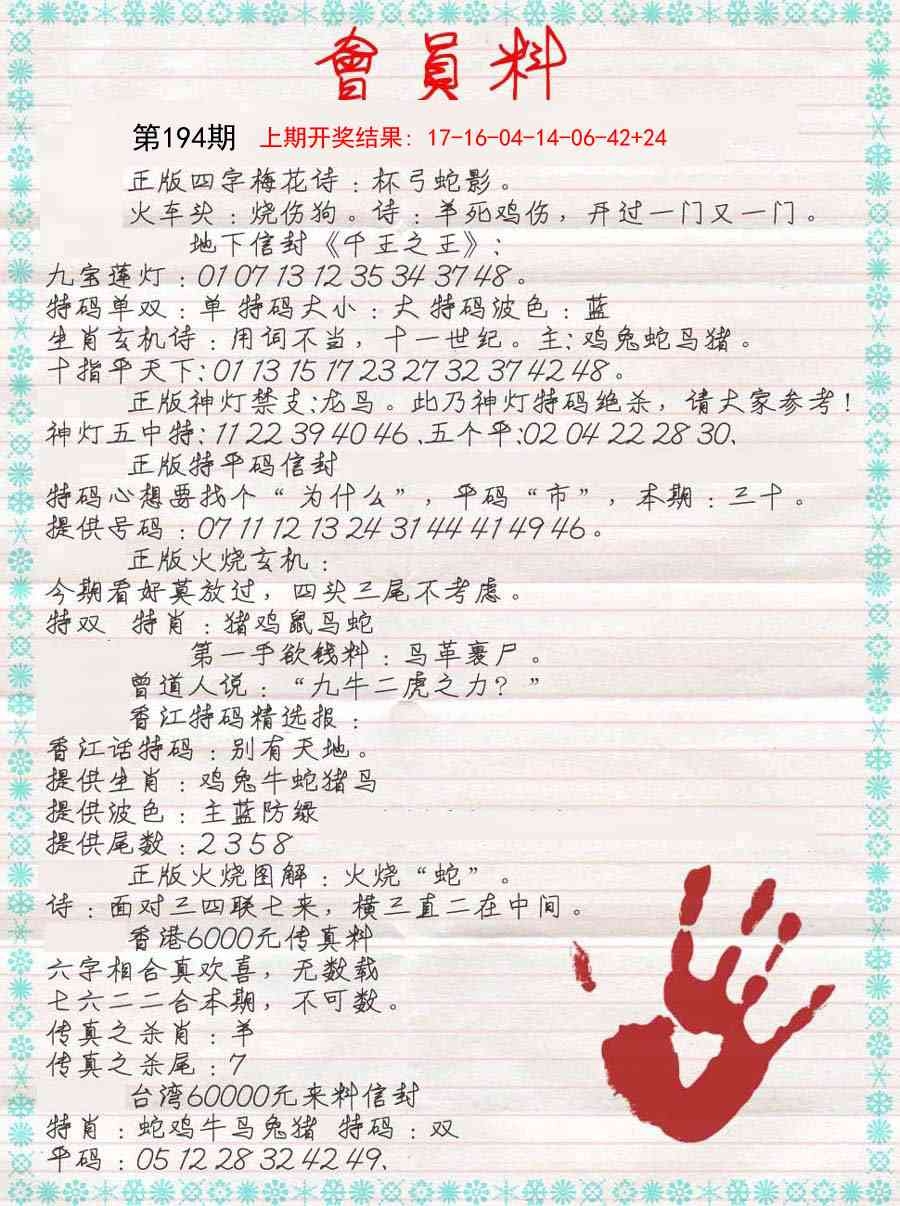 會員料
第194期 上期开奖结果：17-16-04-14-06-42+24
正版四字梅花诗：杯弓蛇影。
火车头：烧伤狗。诗：羊死鸡伤，开过一门又一门。
地下信封《千王之王》：
九宝莲灯：01 07 13 12 35 34 37 48。
特码单双：单 特码大小：大 特码波色：蓝
生肖玄机诗：用词不当，十一世纪。主：鸡兔蛇马猪。
十指平天下：01 13 15 17 23 27 32 37 42 48。
正版神灯禁支：龙鸟。此乃神灯特码绝杀，请大家参考！
神灯五中特：11 22 39 40 46、五个平：02 04 22 28 30、
正版特平码信封
特码心想要找个“为什么”，平码“市”，本期：三十。
提供号码：07 11 12 13 24 31 44 41 49 46。
正版火烧玄机：
今期看好莫放过，四头三尾不考虑。
特双 特肖：猪鸡鼠马蛇
第一手欲钱料：马革裹尸。
曾道人说：“九牛二虎之力？”
香江特码精选报：
香江话特码：别有天地。
提供生肖：鸡兔牛蛇猪马
提供波色：主蓝防绿
提供尾数：2 3 5 8
正版火烧图解：火烧“蛇”。
诗：面对三四联七来，横三直二在中间。
香港6000元传真料
六字相合真欢喜，无数载
七六二二合本期，不可数。
传真之杀肖：羊
传真之杀尾：7
台湾60000元来料信封
特肖：蛇鸡牛马兔猪 特码：双
平码：05 12 28 32 42 49、